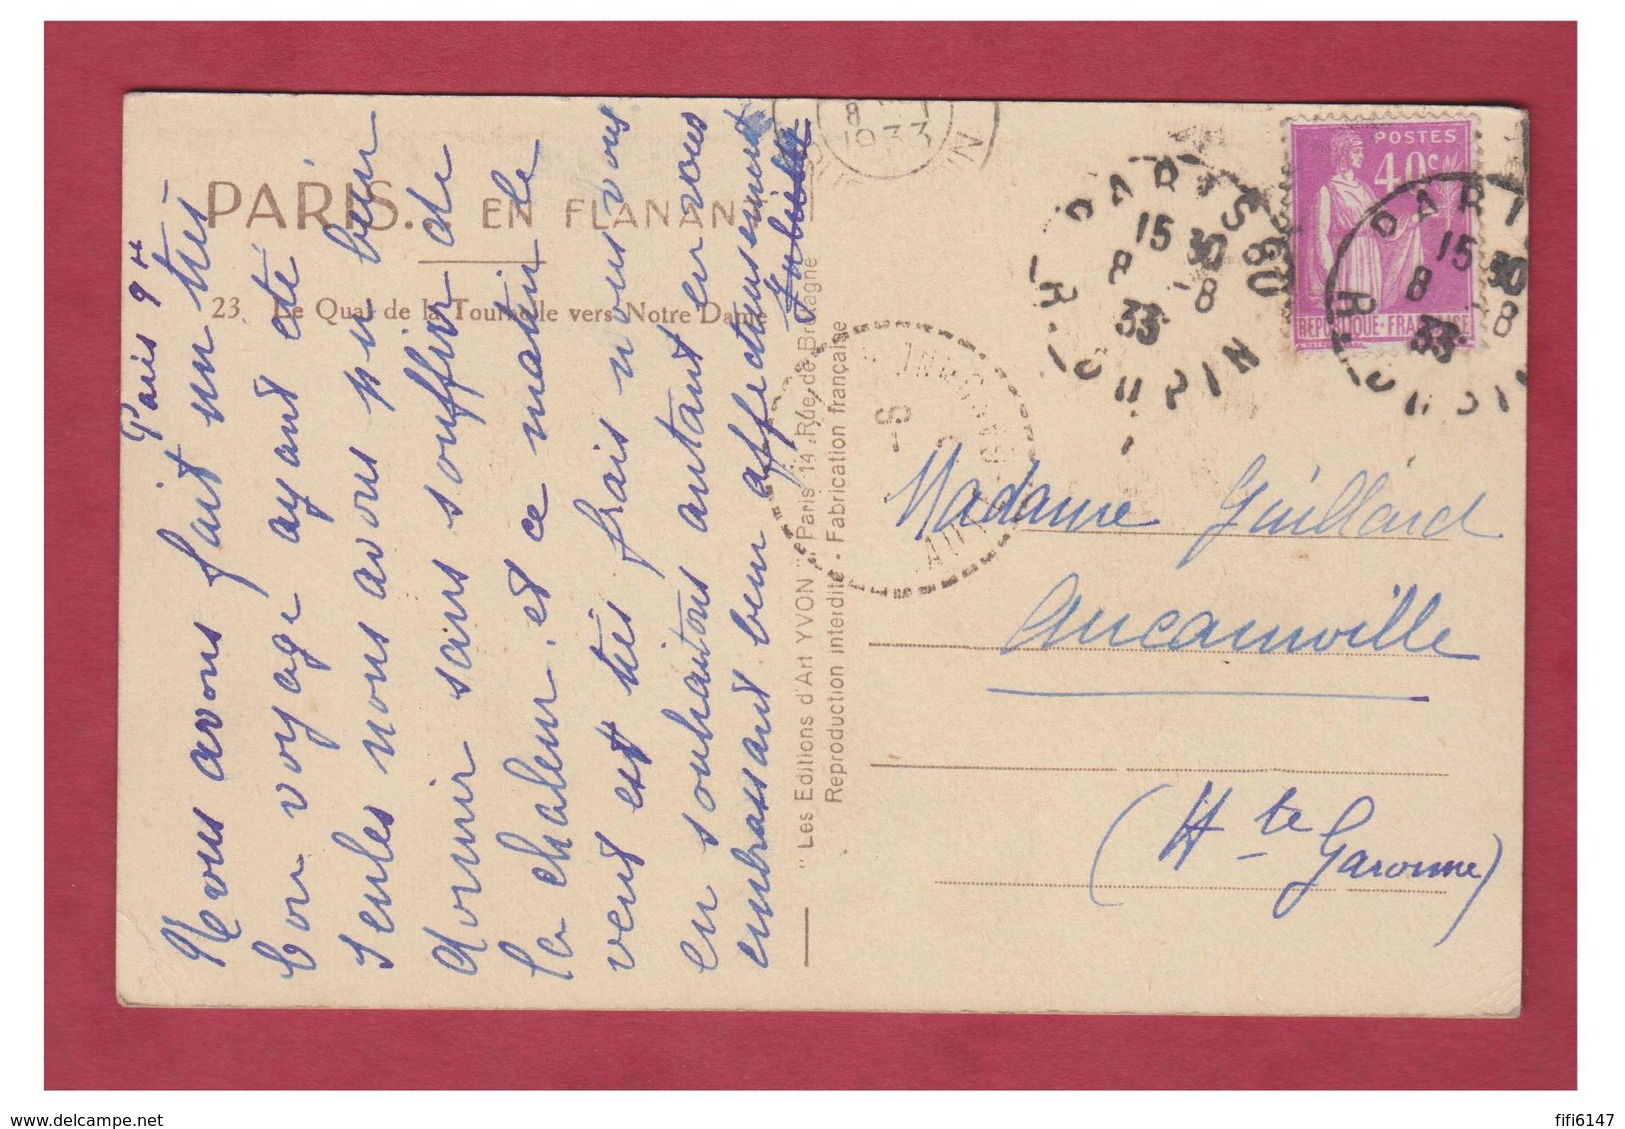 PARIS... EN FLANANT
23. Le Quai de la Tournelle vers Notre Dame
Paris 9 H
Nous avons fait un très
bon voyage ayant été
seules nous avons pu bien
dormir sans souffrir de
la chaleur, et ce matin le
vent est très frais nous vous
en souhaitons autant en vous
embrassant bien affectueusement
"Les Editions d'Art YVON" Paris 14, Rue de Bretagne
Reproduction interdite - Fabrication française
8
1933
PARIS 80
15 30
8 8
33
R. DUPIN
POSTES
40c
REPUBLIQUE-FRANÇAISE
PARIS
15 30
8 8
33
9-
Madame Guillard
Aucamville
(Hte Garonne)
fifi6147